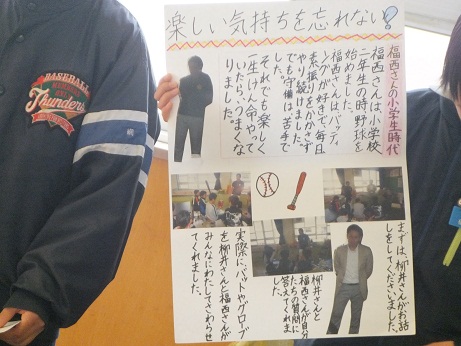 楽しい気持ちを忘れない!
福西さんの小学生時代
福西さんは小学校
二年生の時野球を
始めました。
福西さんは、バッティ
ングが好きで毎日
素振りをかかさず
やり続けました。
でも守備は苦手で
した。
それでも楽しく
一生けん命やって
いたら、うまくな
りました。
まずは、柳井さんがお話
しをしてくださいました。
柳井さんと
福西さんが自分
たちの質問に
答えてくれま
した。
実際に、バットやグローブ
を柳井さんと福西さんが
みんなにわたしてさわらせ
てくれました。
BASEBALL
Thunders